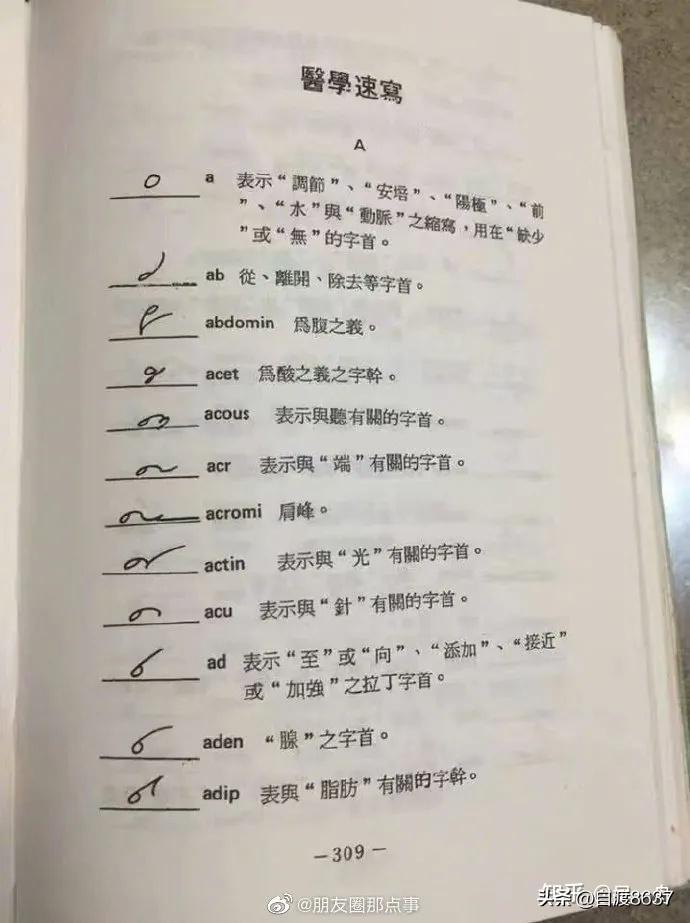 醫學速寫
A
a 表示“調節”、“安培”、“陽極”、“前
”、“水”與“動脈”之縮寫，用在“缺少
”或“無”的字首。
ab 從、離開、除去等字首。
abdomin 爲腹之義。
acet 爲酸之義之字幹。
acous 表示與聽有關的字首。
acr 表示與“端”有關的字首。
acromi 肩峰。
actin 表示與“光”有關的字首。
acu 表示與“針”有關的字首。
ad 表示“至”或“向”、“添加”、“接近”
或“加強”之拉丁字首。
aden “腺”之字首。
adip 表與“脂肪”有關的字幹。
—309—
知乎
@朋友圈那点事
头条@自度8637